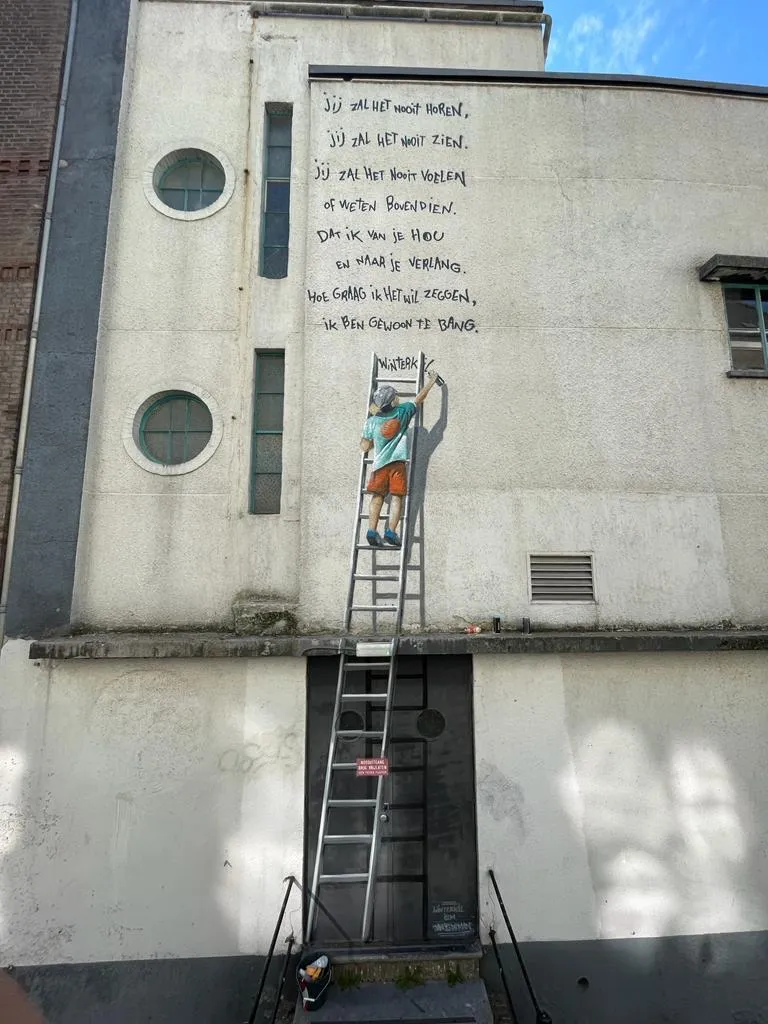 jij ZAL HET NOOIT HOREN,
jij ZAL HET NOOIT ZIEN.
jij ZAL HET NOOIT VOELEN
OF WETEN BOVENDIEN.
DAT iK VAN jE HOU
EN NAAR jE VERLANG.
HOE GRAAG iK HET WiL ZEGGEN,
iK BEN GEWOON TE BANG.
WiNTERK
NOODUITGANG
DEUR VRIJLATEN
WINTERKIL